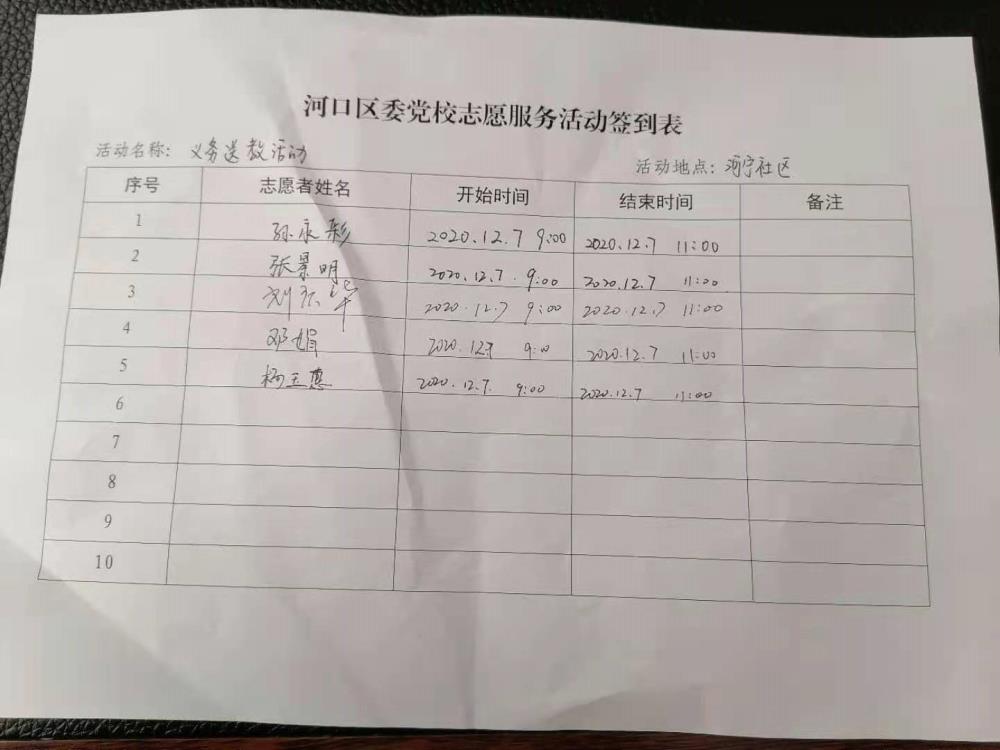 河口区委党校志愿服务活动签到表
活动名称: 义务送教活动 活动地点: 河宁社区
序号 志愿者姓名 开始时间 结束时间 备注
1 孙永彩 2020.12.7 9:00 2020.12.7 11:00
2 张景明 2020.12.7. 9:00 2020.12.7 11:00
3 2020.12.7 9:00 2020.12.7 11:00
4 邓娟 2020.12.7 9:0 2020.12.7 11:00
5 杨玉慧 2020.12.7. 9:00 2020.12.7 11:00
6
7
8
9
10